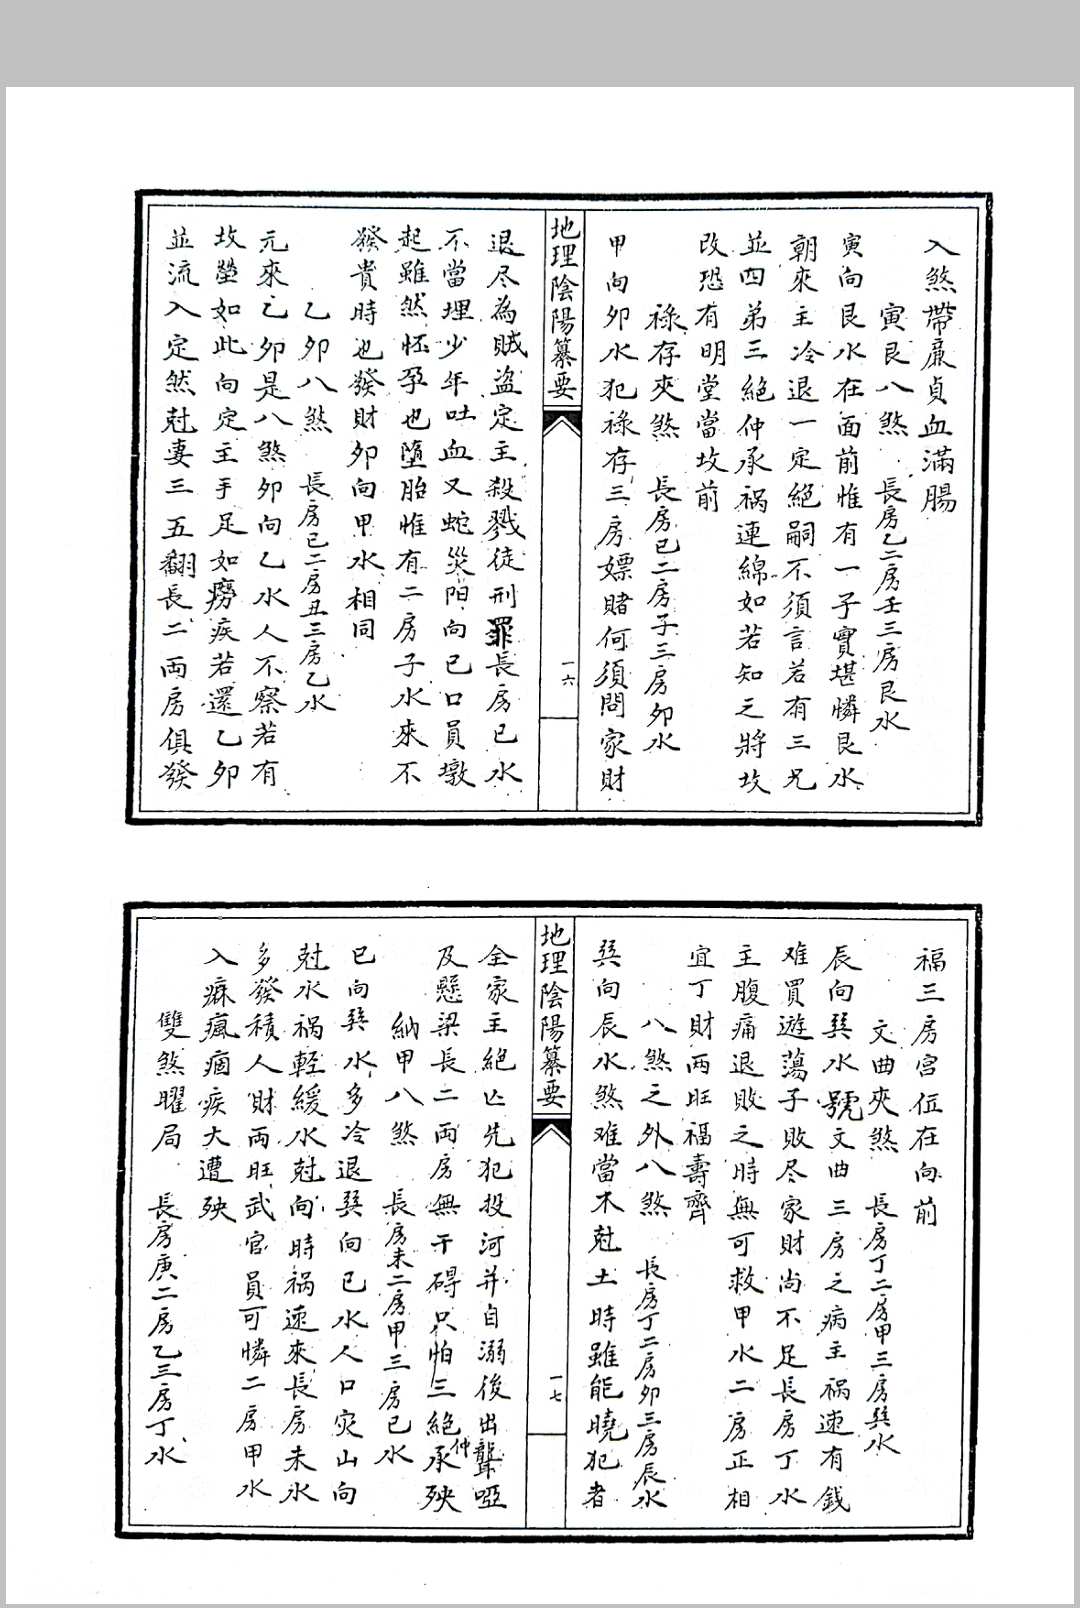 入煞帶廉貞血滿腸
寅艮八煞　長房乙二房壬三房艮水
寅向艮水在面前惟有一子實堪憐艮水
朝來主冷退一定絕嗣不須言若有三兄
並四弟三絕仲承禍連綿如若知之將坟
改恐有明堂當坟前
祿存夾煞　長房巳二房子三房卯水
甲向卯水犯祿存三房嫖賭何須問家財
地理陰陽纂要
一六
退尽為賊盗定主殺戮徒刑罪長房巳水
不當埋少年吐血又蛇災阳向巳口員墩
起雖然怪孕也墮胎惟有二房子水來不
發貴時也發財卯向甲水相同
乙卯八煞　長房巳二房丑三房乙水
元來乙卯是八煞卯向乙水人不察若有
坟塋如此向定主手足如癆疾若還乙卯
並流入定然尅妻三五翻長二両房俱發
福三房宫位在向前
文曲夾煞　長房丁二房甲三房巽水
辰向巽水號文曲三房之病主禍速有錢
难買遊蕩子敗尽家財尚不足長房丁水
主腹痛退敗之時無可救甲水二房正相
宜丁財両旺福壽齊
八煞之外八煞　長房丁二房卯三房辰水
巽向辰水煞难當木尅土時雖能曉犯者
地理陰陽纂要
一七
全家主絕亡先犯投河并自溺後出聾啞
及懸梁長二両房無干碍只怕三絕仲承殃
納甲八煞　長房未二房甲三房巳水
巳向巽水多冷退巽向巳水人口灾山向
尅水禍輕緩水尅向時禍速來長房未水
多發積人財両旺武官員可憐二房甲水
入痳瘋痼疾大遭殃
雙煞曜局　長房庚二房乙三房丁水